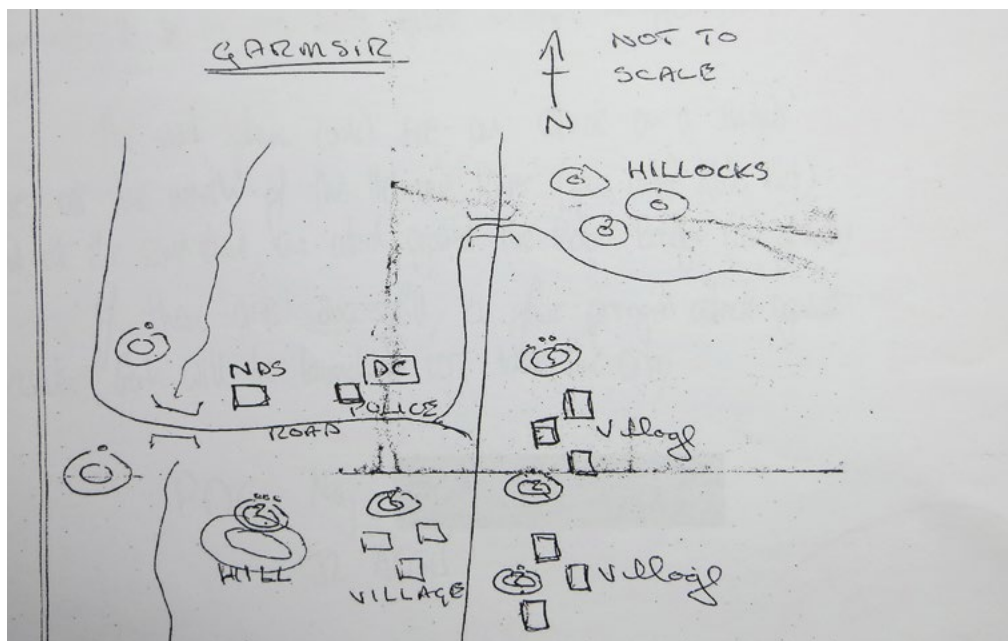 GARMSIR
NOT TO
SCALE
N
HILLOCKS
NDS
DC
POLICE
ROAD
Village
HILL
VILLAGE
Village